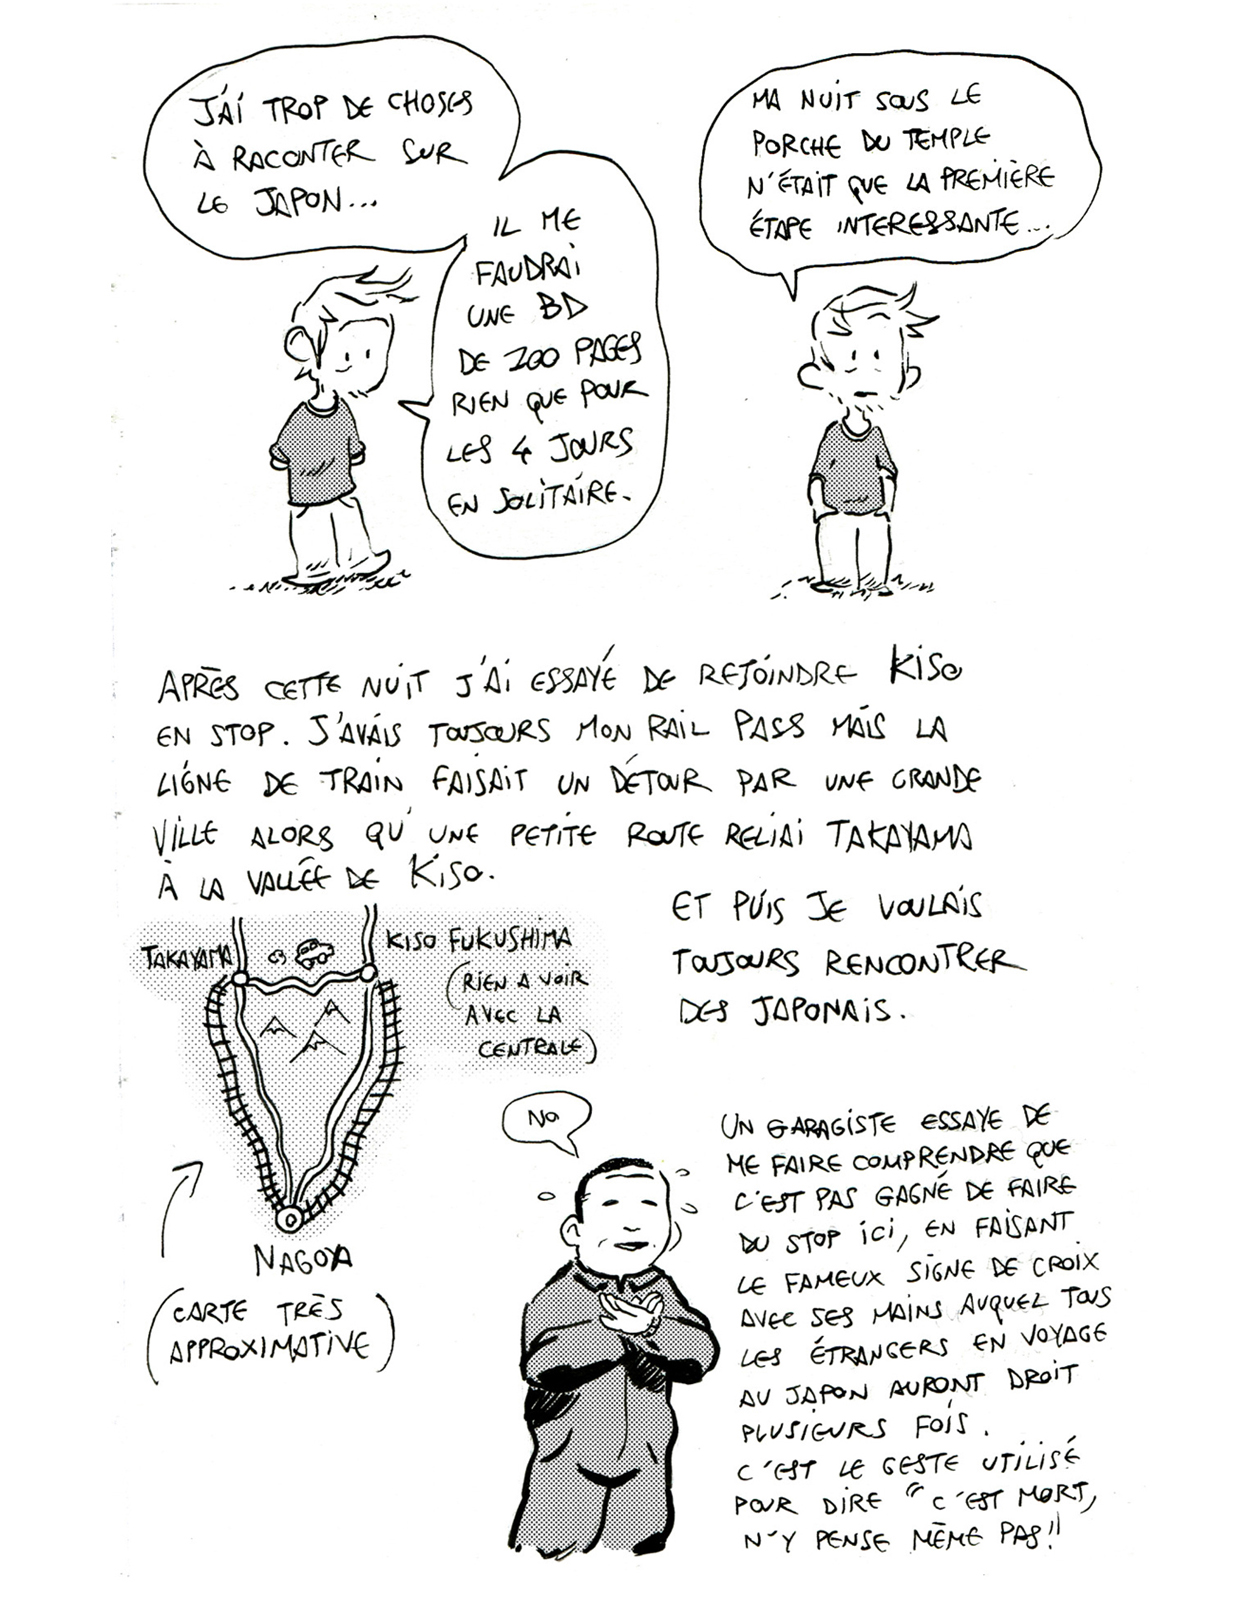 J'AI TROP DE CHOSES
À RACONTER SUR
LE JAPON...
IL ME
FAUDRAI
UNE BD
DE 200 PAGES
RIEN QUE POUR
LES 4 JOURS
EN SOLITAIRE.
MA NUIT SOUS LE
PORCHE DU TEMPLE
N'ÉTAIT QUE LA PREMIÈRE
ÉTAPE INTERESSANTE...
APRÈS CETTE NUIT J'AI ESSAYÉ DE REJOINDRE KISO
EN STOP. J'AVAIS TOUJOURS MON RAIL PASS MAIS LA
LIGNE DE TRAIN FAISAIT UN DÉTOUR PAR UNE GRANDE
VILLE ALORS QU'UNE PETITE ROUTE RELIAI TAKAYAMA
À LA VALLÉE DE KISO.
ET PUIS JE VOULAIS
TOUJOURS RENCONTRER
DES JAPONAIS.
TAKAYAMA
KISO FUKUSHIMA
(RIEN A VOIR
AVEC LA
CENTRALE)
NAGOYA
(CARTE TRÈS
APPROXIMATIVE)
NO
UN GARAGISTE ESSAYE DE
ME FAIRE COMPRENDRE QUE
C'EST PAS GAGNÉ DE FAIRE
DU STOP ICI, EN FAISANT
LE FAMEUX SIGNE DE CROIX
AVEC SES MAINS AUQUEL TOUS
LES ÉTRANGERS EN VOYAGE
AU JAPON AURONT DROIT
PLUSIEURS FOIS.
C'EST LE GESTE UTILISÉ
POUR DIRE "C'EST MORT,
N'Y PENSE MÊME PAS!"